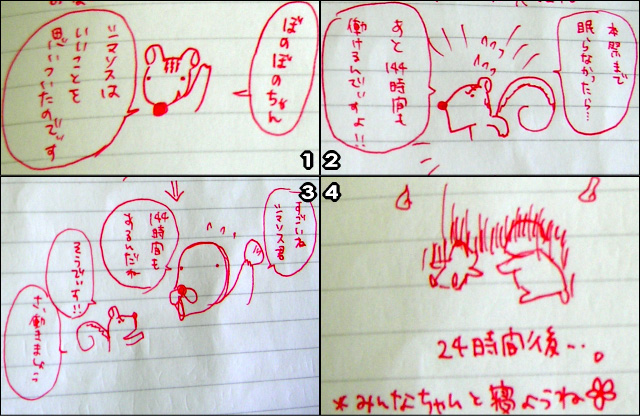 ぼのぼのちゃん
ミマソスは
いいことを
思いついたのでぃす
1
本祭まで
眠らなかったら…
あと144時間も
働けるんでぃすよ!!
2
すごいね
ミマソス君
144時間も
あるんだね
そうでぃす!!
さ、働きましょ
3
24時間後…。
*みんなちゃんと寝ようね
4